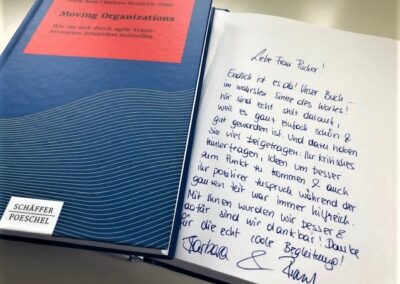 Frank Boos / Barbara Buzanich-Pöltl
Moving Organizations
Wie Sie sich durch agile Trans-
formation krisenfest aufstellen
SCHÄFFER
POESCHEL
Liebe Frau Pucher!
Endlich ist es da! Unser Buch...
im wahrsten Sinne des Wortes!
Wir sind echt stolz darauf,
weil es ganz einfach schön &
gut geworden ist. Und dazu haben
Sie viel beigetragen. Ihr kritisches
Hinterfragen, Ideen um besser
zum Punkt zu kommen & auch
Ihr positiver Zuspruch während der
ganzen Zeit war immer hilfreich.
Mit Ihnen wurden wir besser &
dafür sind wir dankbar! Danke
für die echt coole Begleitung!
Barbara & Frank